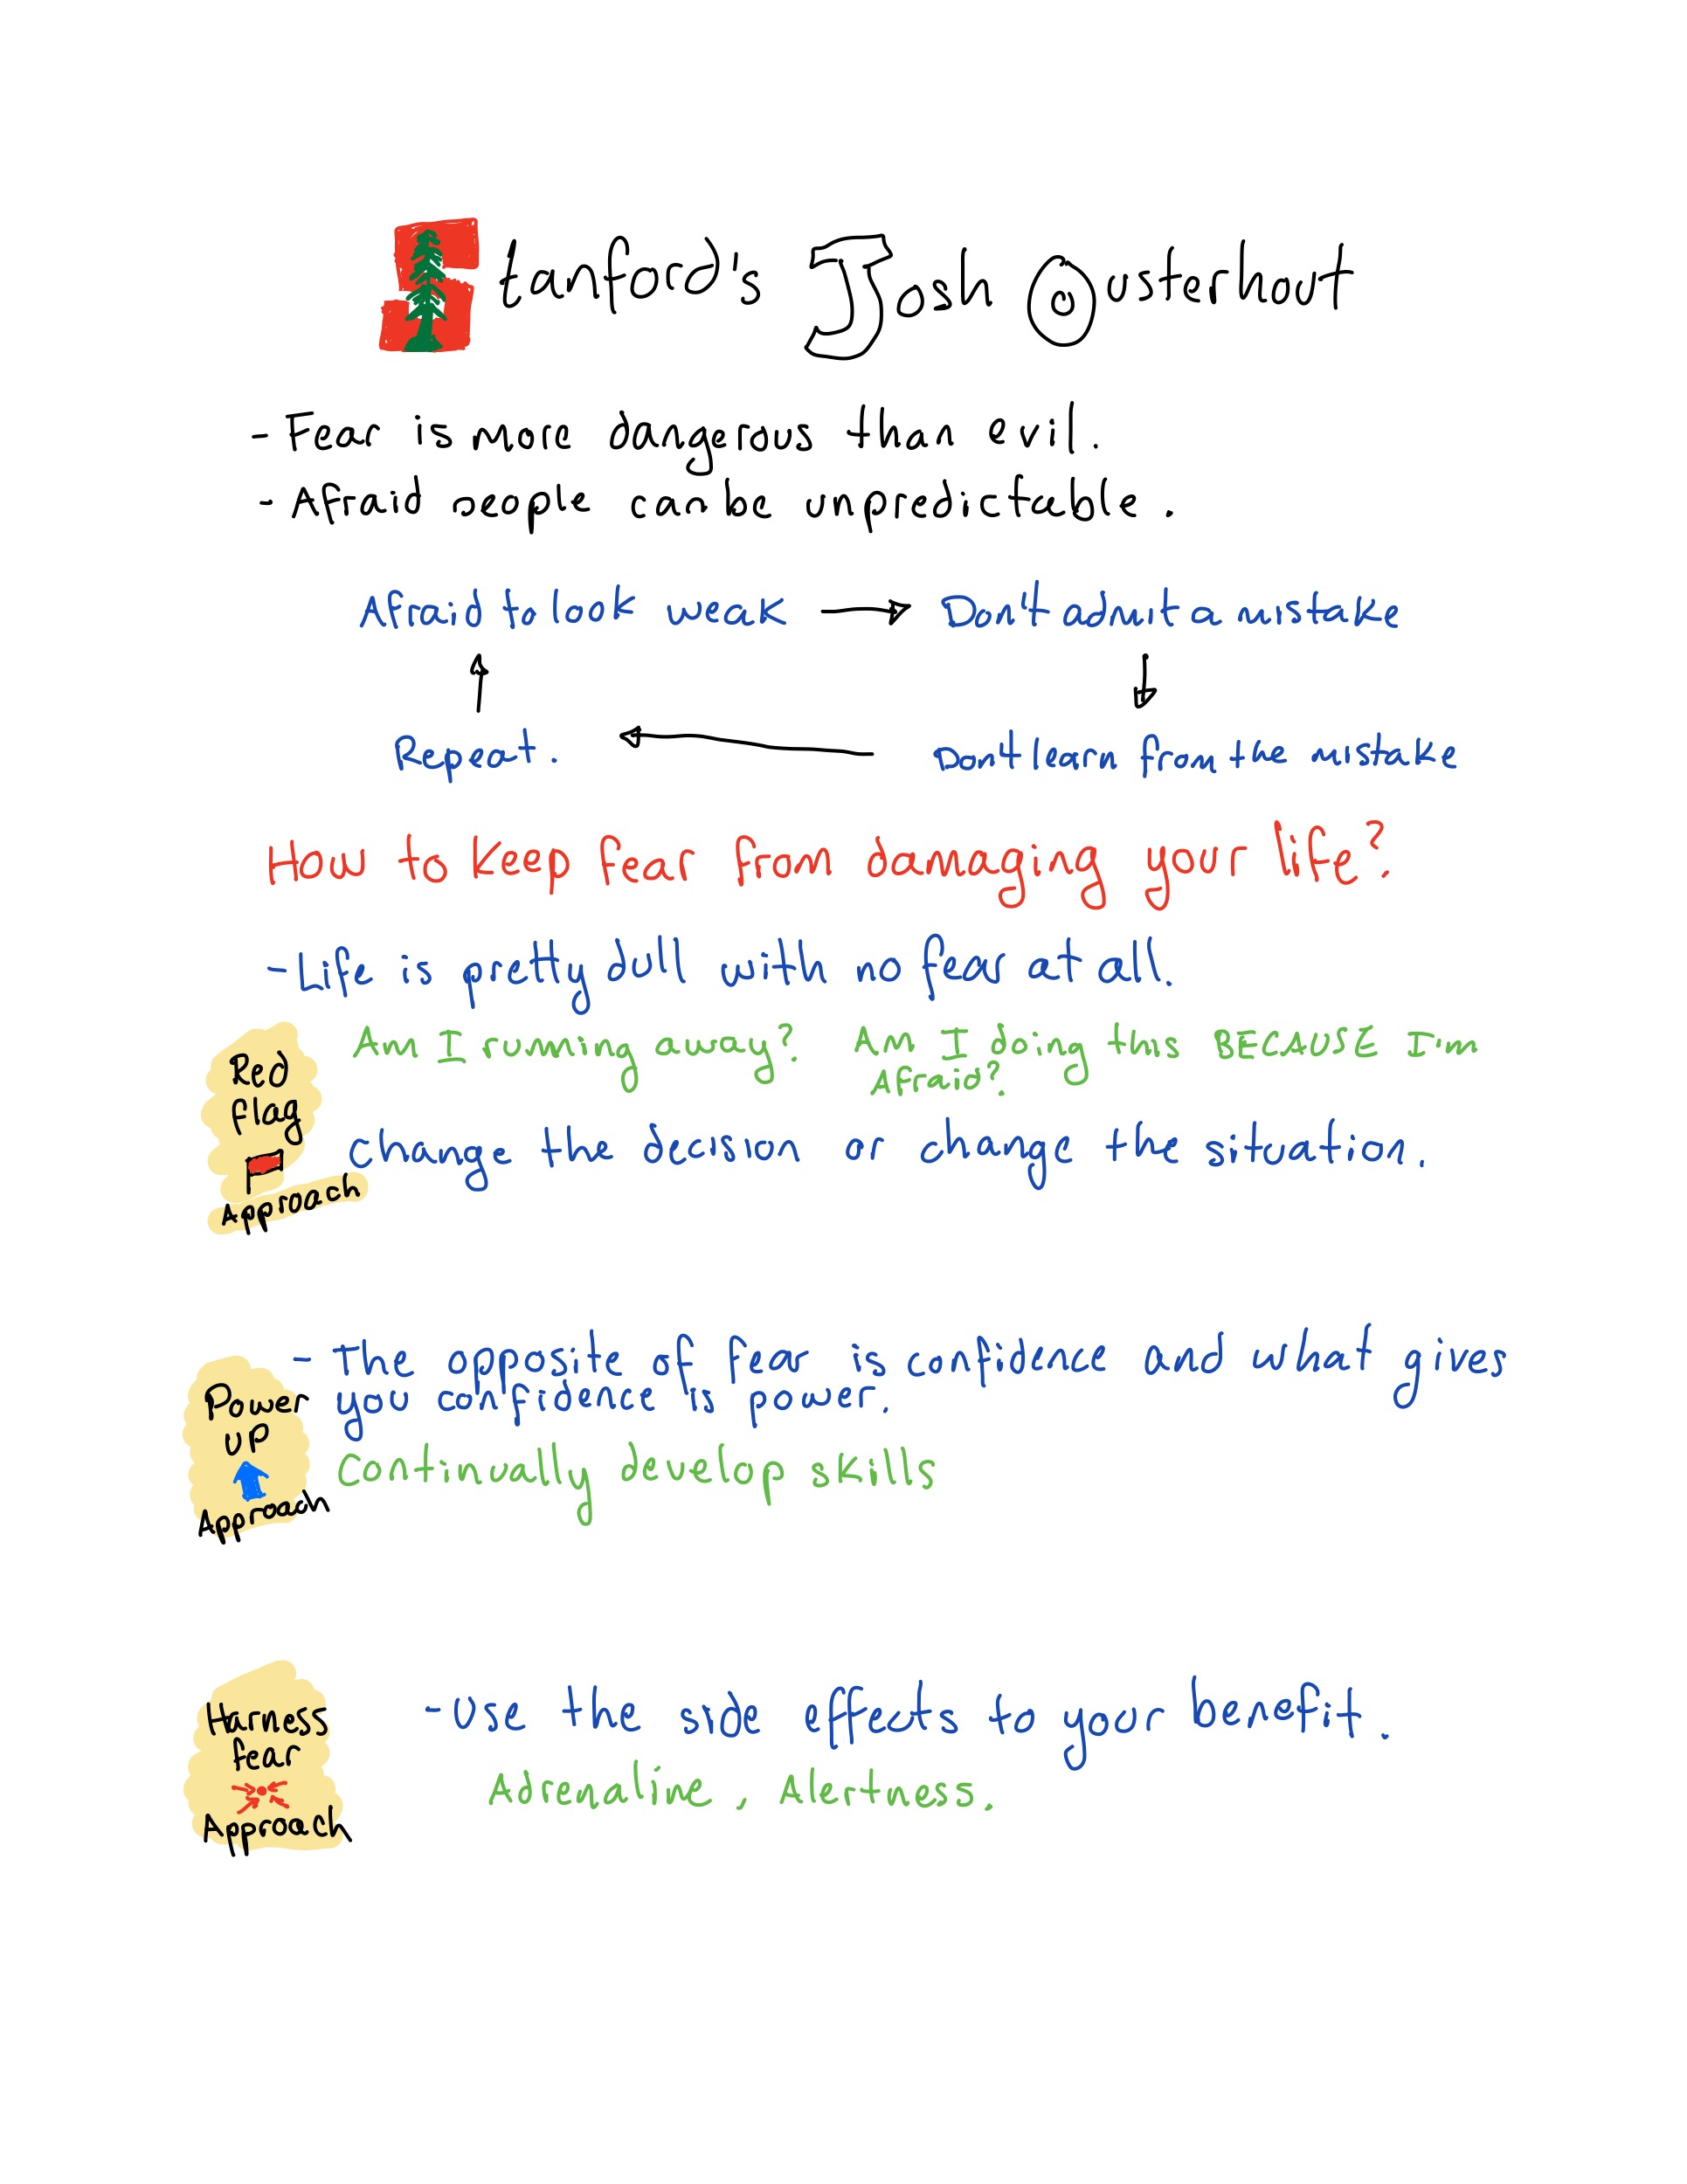 Stanford's Josh Ousterhout
- Fear is more dangerous than evil.
- Afraid people can be unpredictable.
Afraid to look weak → Don't admit a mistake
↑ ↓
Repeat. ← Don't learn from the mistake
How to keep fear from damaging your life?
- Life is pretty dull with no fear at all.
Red
flag
Approach
Am I running away? Am I doing this BECAUSE I'm
Afraid?
change the decision or change the situation.
Power
up
Approach
- The opposite of fear is confidence and what gives
you confidence is power.
Continually develop skills
Harness
fear
Approach
- Use the side effects to your benefit.
Adrenaline, Alertness.